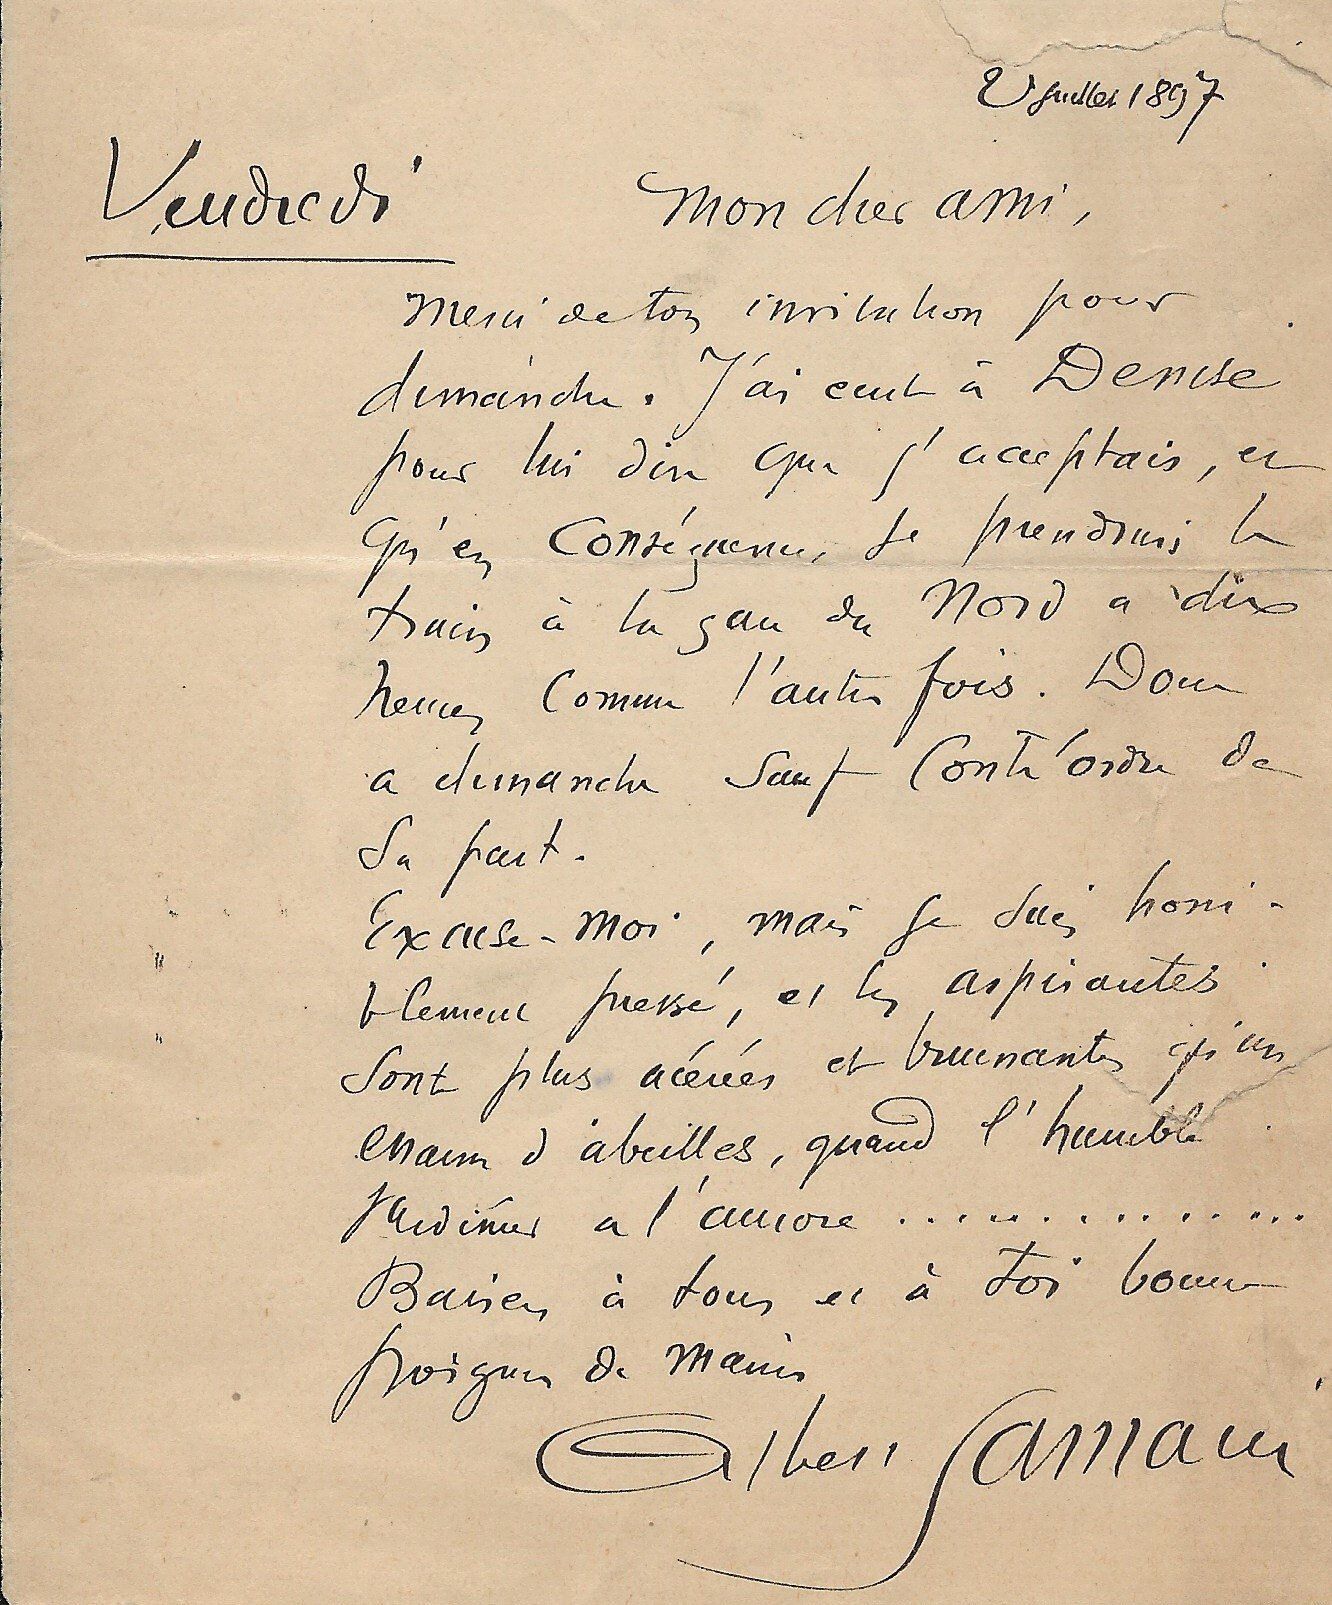 2 Juillet 1897
Vendredi
Mon cher ami,
Merci de ton invitation pour
dimanche. J'ai écrit à Denise
pour lui dire que j'acceptais, et
qu'en conséquence, je prendrais le
train à la gare du Nord a dix
heures comme l'autre fois. Donc
a dimanche sauf contr'ordre de
sa part.
Excuse-moi, mais je suis horri-
blement pressé, et les aspirantes
sont plus acérées et bruinantes qu'un
essaim d'abeilles, quand l'humble
jardinier a l'aurore ..................
Baisers à tous et à toi bonne
poignée de mains
Albert Samain